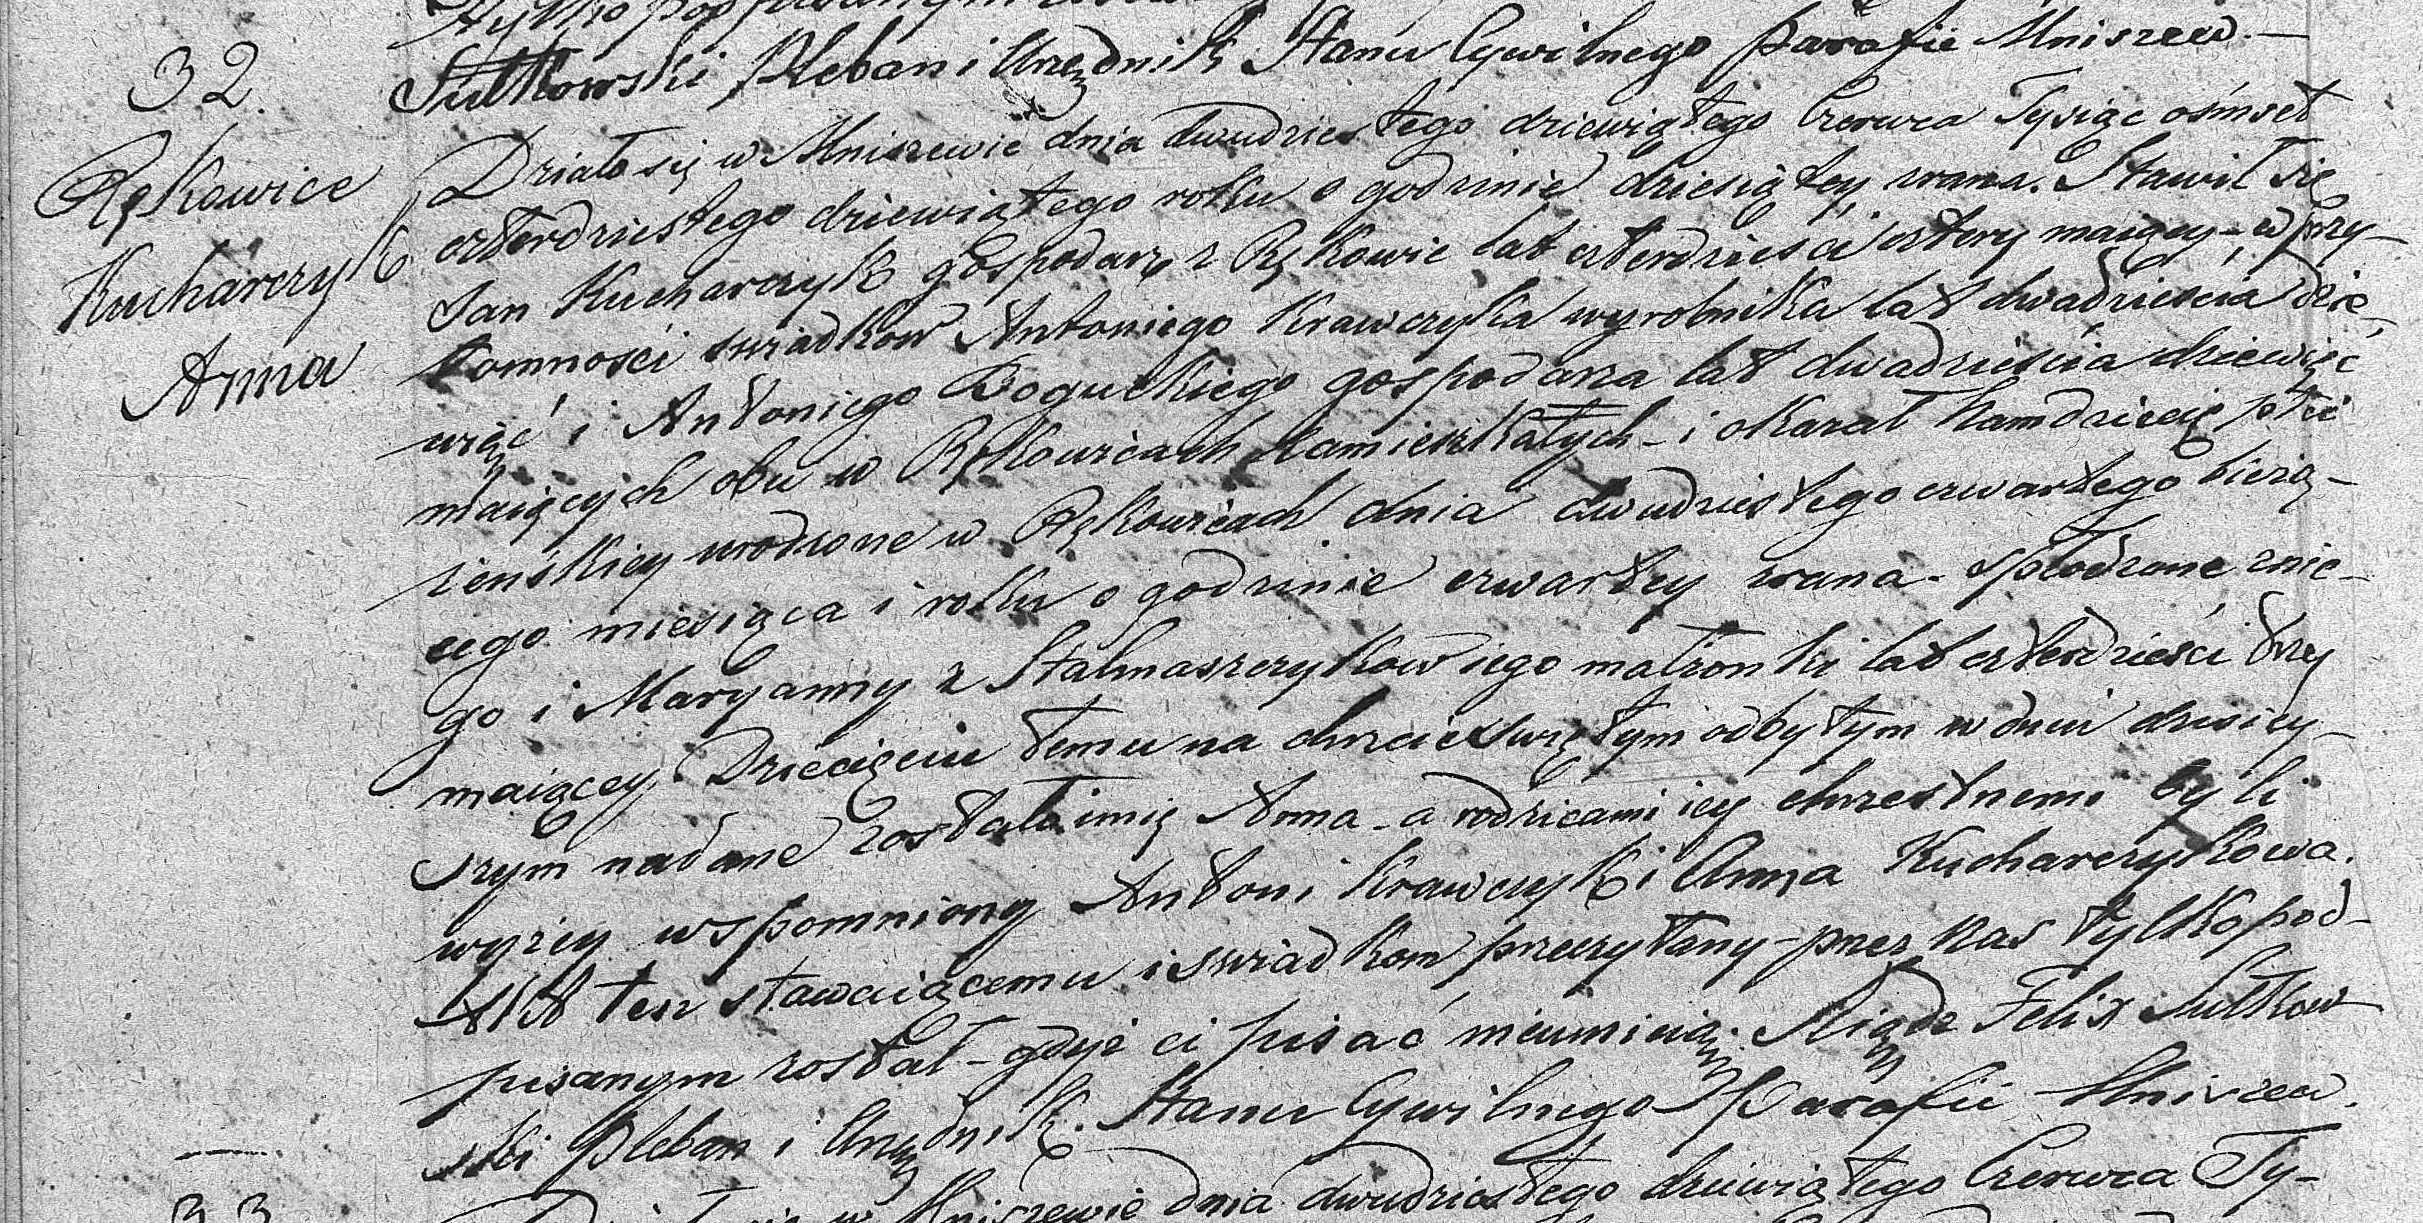 Sutkowski Pleban i Urzędnik Stanu Cywilnego Parafii Mniszew. —
32.
Rękowice
Kucharczyk
Anna
Działo się w Mniszewie dnia dwudziestego dziewiątego Czerwca Tysiąc ośmset
czterdziestego dziewiątego roku o godzinie dziesiątey zrana. Stawił się
Jan Kucharczyk gospodarz z Rękowic lat czterdzieści cztery maiący – w przy-
tomności swiadków Antoniego Krawczyka wyrobnika lat dwadzieścia dzie-
więć i Antoniego Boguckiego gospodarza lat dwadzieścia dziewięć
maiących obu w Rękowicach zamieszkałych – i okazał Nam dziecię płci
żeńskiey urodzone w Rękowicach dnia dwudziestego czwartego bieżą-
cego miesiąca i roku o godzinie czwartey zrana – spłodzone z nie-
go i Maryanny z Stalmaszczyków iego małżonki lat czterdzieści trzy
maiącey. Dziecięciu temu na chrzcie świętym odbytym w dniu dzisiey-
szym nadane zostało imię Anna – a rodzicami iey chrzestnemi byli
wyżey wspomniony Antoni Krawczyk i Anna Kucharczykowa.
Akt ten stawaiącemu i swiadkom przeczytany – przez Nas tylko pod-
pisanym został – gdyż ci pisać nieumieią. Xiądz Felix Sutkow-
ski Pleban i Urzędnik Stanu Cywilnego Parafii Mniszew.
33
Działo się w Mniszewie dnia dwudziestego dziewiątego Czerwca Ty-